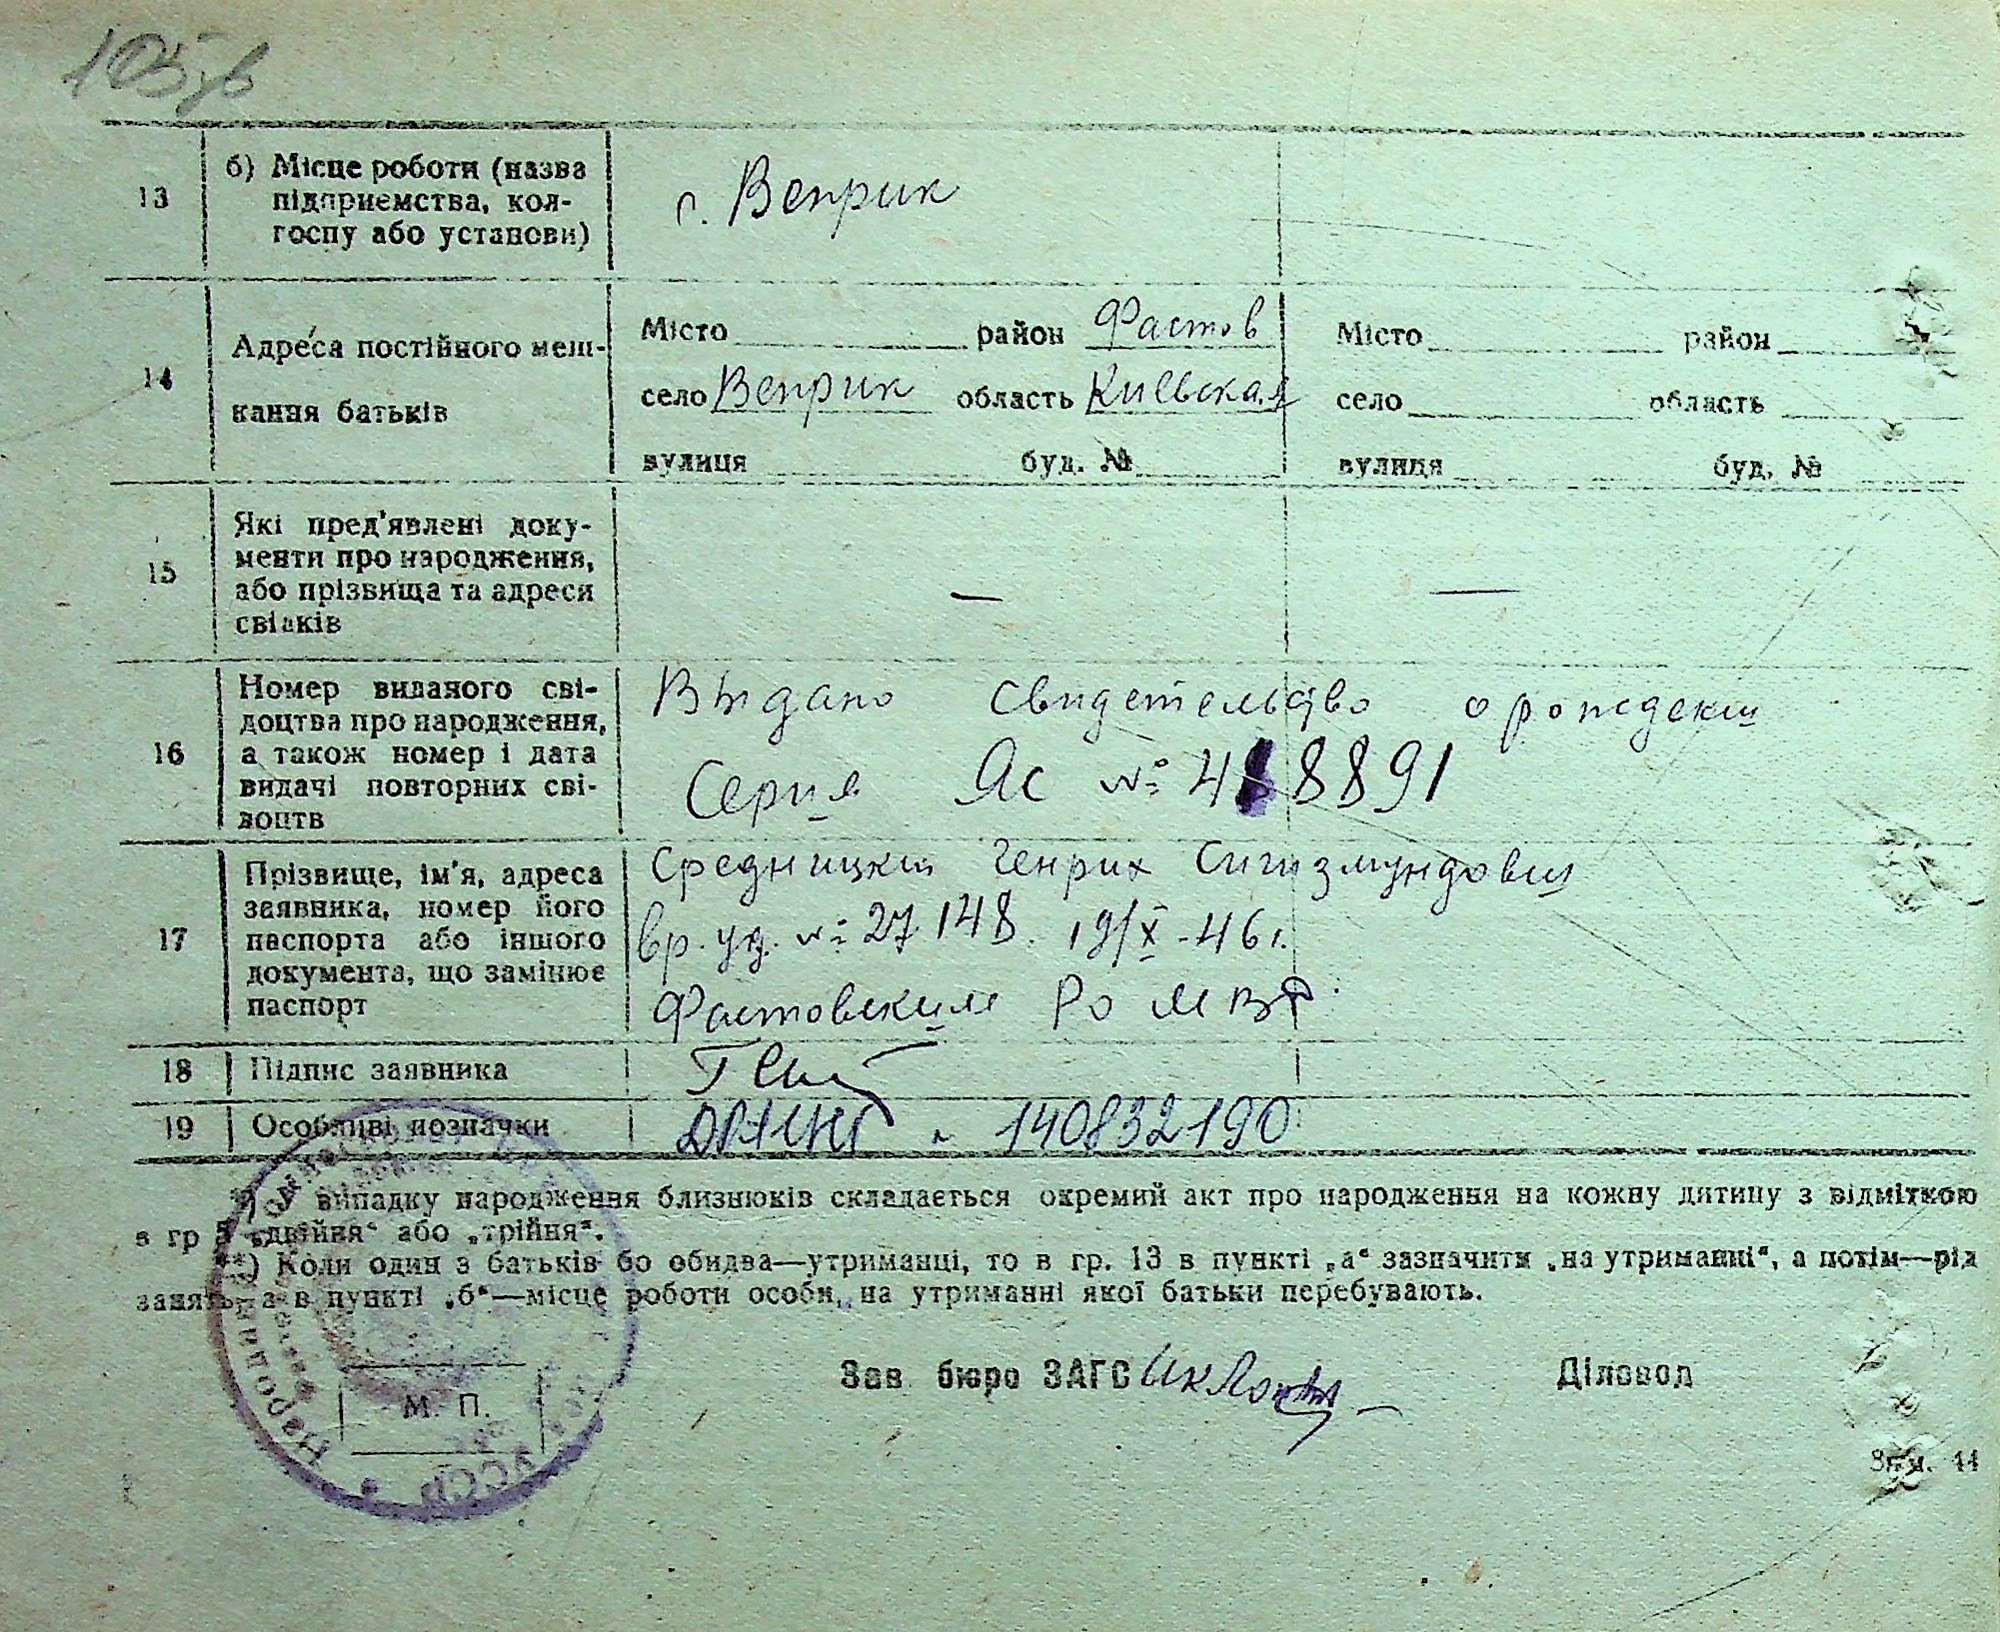 105 зв
13
б) Місце роботи (назва
підприємства, кол-
госпу або установи)
с. Веприк
14
Адреса постійного меш-
кання батьків
Місто район Фастов
село Веприк область Киевская
вулиця буд. №
Місто район
село область
вулиця буд. №
15
Які пред'явлені доку-
менти про народження,
або прізвища та адреси
свідків
—
—
16
Номер виданого сві-
доцтва про народження,
а також номер і дата
видачі повторних сві-
доцтв
Выдано свидетельство о рождении
Серия Яс № 4 8891
17
Прізвище, ім'я, адреса
заявника, номер його
паспорта або іншого
документа, що замінює
паспорт
Средницкий Генрих Сигизмундович
вр. уд. № 27148. 19/X-46 г.
Фастовским РО МВД
18
Підпис заявника
19
Особливі позначки
140832190
випадку народження близнюків складається окремий акт про народження на кожну дитину з відміткою
в гр 5 „двійня“ або „трійня“.
Коли один з батьків бо обидва—утриманці, то в гр. 13 в пункті „а“ зазначити „на утриманні“, а потім—рід
занять, а в пункті „б“—місце роботи особи, на утриманні якої батьки перебувають.
Зав. бюро ЗАГС
Діловод
М. П.
УССР
Зам. 44